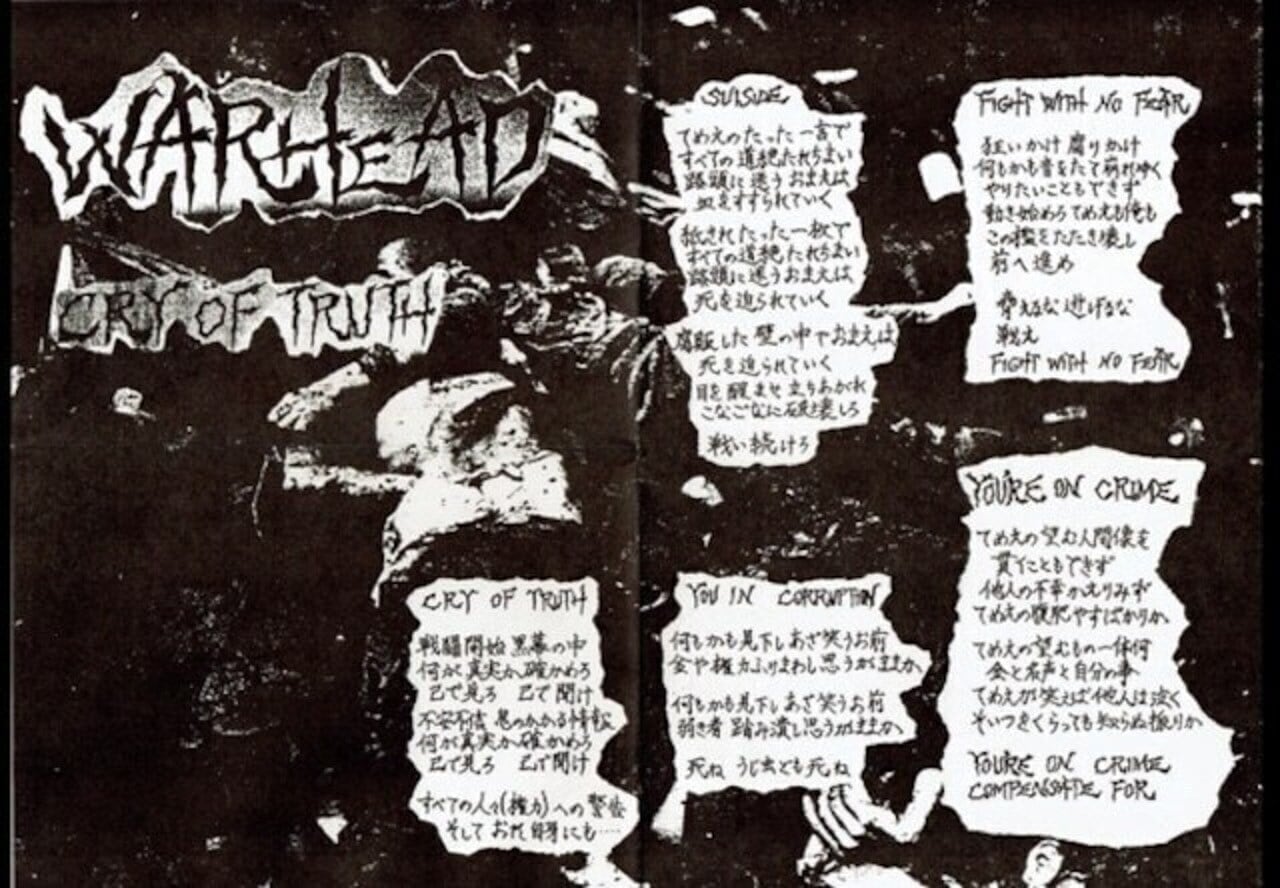 WARHEAD
CRY OF TRUTH
SUISIDE
てめえのたった一言で
すべての道絶たれちまい
路頭に迷うおまえは
血をすすられていく
紙きれたった一枚で
すべての道絶たれちまい
路頭に迷うおまえは
死を迫られていく
腐敗した壁の中でおまえは
死を迫られていく
目を醒ませ立ちあがれ
こなごなに破壊しろ
戦い続けろ
FIGHT WITH NO FEAR
狂いかけ腐りかけ
何もかも音をたて崩れゆく
やりたいこともできず
動き始めろてめえも俺も
この檻をたたき壊し
前へ進め
脅えるな逃げるな
戦え
FIGHT WITH NO FEAR
CRY OF TRUTH
戦闘開始 黒幕の中
何が真実か確かめろ
己で見ろ 己で聞け
不安不信 息のかかる情報
何が真実か確かめろ
己で見ろ 己で聞け
すべての人々(権力)への警告
そしておれ自身にも……
YOU IN CORRUPTION
何もかも見下しあざ笑うお前
金や権力ふりまわし思うがままか
何もかも見下しあざ笑うお前
弱き者 踏み潰し思うがままか
死ね うじ虫ども死ね
YOU'RE ON CRIME
てめえの望む人間像を
貫くこともできず
他人の不幸かえりみず
てめえの腹肥やすばかりか
てめえの望むもの一体何
金と名声と自分の事
てめえが笑えば他人は泣く
そいつをくらっても知らぬ振りか
YOU'RE ON CRIME
COMPENSATE FOR